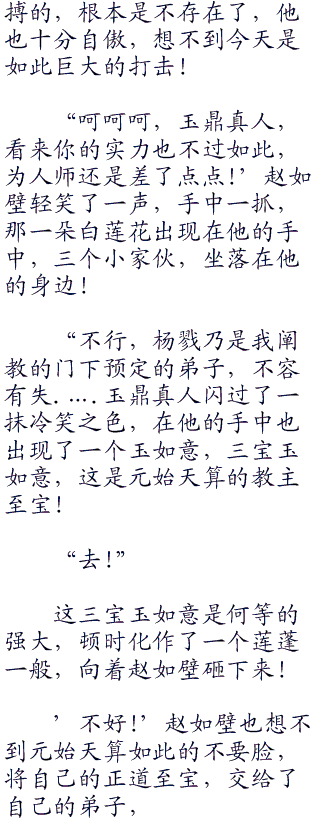 搏的，根本是不存在了，他
也十分自傲，想不到今天是
如此巨大的打击！
“呵呵呵，玉鼎真人，
看来你的实力也不过如此，
为人师还是差了点点!’赵如
壁轻笑了一声，手中一抓，
那一朵白莲花出现在他的手
中，三个小家伙，坐落在他
的身边！
“不行，杨戬乃是我阐
教的门下预定的弟子，不容
有失.....玉鼎真人闪过了一
抹冷笑之色，在他的手中也
出现了一个玉如意，三宝玉
如意，这是元始天算的教主
至宝！
“去！”
这三宝玉如意是何等的
强大，顿时化作了一个莲蓬
一般，向着赵如壁砸下来！
’不好!’赵如壁也想不
到元始天算如此的不要脸，
将自己的正道至宝，交给了
自己的弟子，